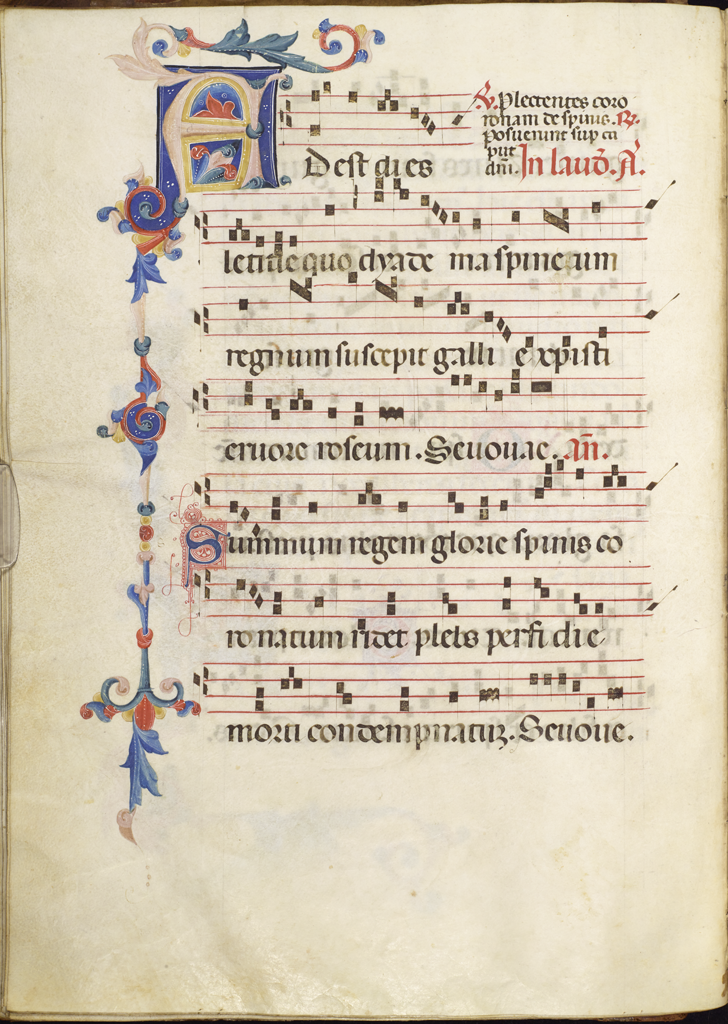 ℣. Plectentes coro
ronam de spinis. ℟.
Posuerunt sup ca
put
dni. In laud. A.
Adest dies
letitie quo dyade ma spineum
regnum suscepit galli e xpisti
cruore roseum. Seuouae. An.
Summum regem glorie spinis co
ronatum ridet plebs perfidie
morti condempnatur. Seuoue.